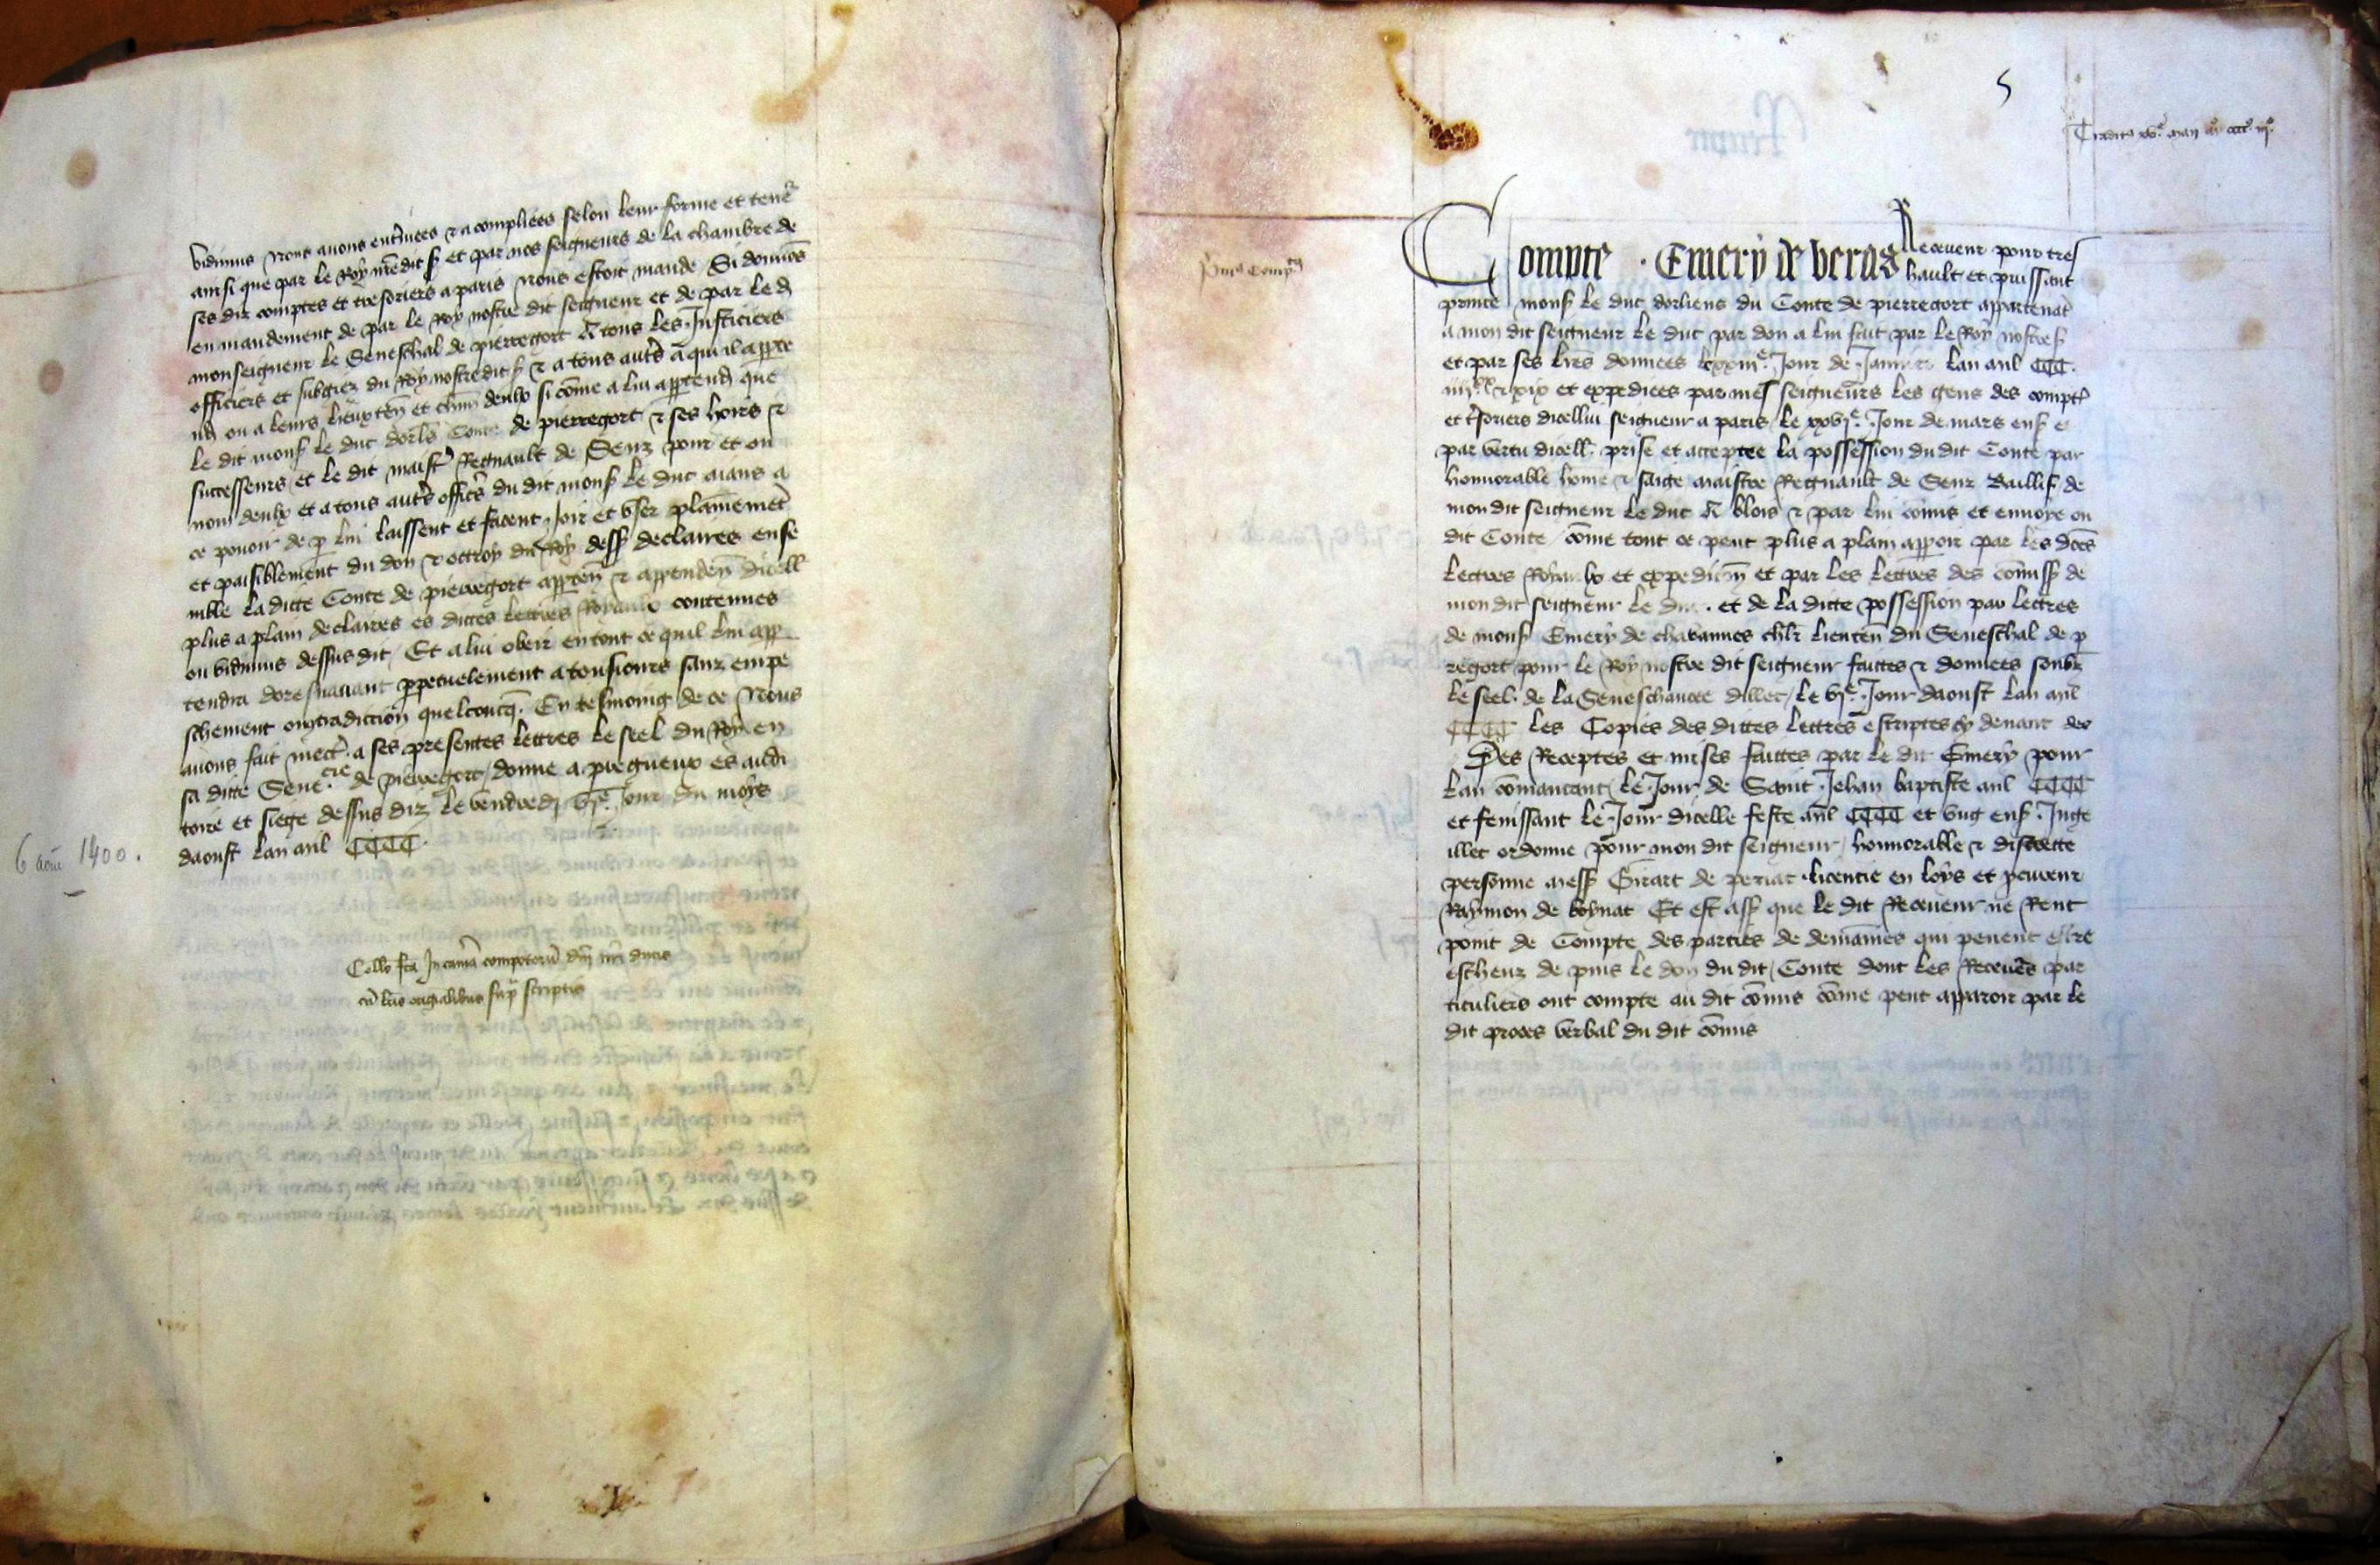 vidimus Nous avons enterinees & acompliees selon leur forme et tene
ainsi que par le Roy nredit s et par nos seigneurs de la chambre de
ses diz comptes et tresoriers a paris nous estoit mande Si donnos
en mandement de par le Roy nostre dit seigneur et de par le d
monseigneur le Seneschal de pierregort A tous les Justiciers
officiers et subgiez du Roy nostredit s & a tous autrs a qui il apprte
ou a leurs lieuxten et chun deulx si come a lui apprtend que
le dit mons le duc dorls Conte de pierregort & ses hoirs &
successeurs et le dit maistr Regnault de Senz pour et ou
nom deulx et a tous autrs officrs du dit mons le duc aians a
ce pouoir de p lui laissent et facent joir et user plainemet
et paisiblement du don & octroy du Roy dess declaires ense
mble la ditte Conte de pierregort apprten & appenden dicell
plus a plain declaires es dittes lettres Royaulx contenues
ou vidimus dessus dit Et a lui obeir en tout ce quil lui app
tendra doresnavant ppetuelement a tousiours sanz empe
schement contradiction quelconq. En tesmoing de ce Nous
avons fait mectr a ses presentes lettres le seel du Roy en
sa ditte Sene.cie de pierregort donne a pregueux es audi
toire et siege dessus diz le vendredi vje. jour du moys
daoust lan mil CCCC.
6 aout 1400.
Collo fca In camra compotorum dni nri ducis
cu lris originalibus supra scriptis
5
Primus Comptus
Compte . Emery de veras Receveur pour tres
hault et puissant
prince mons le duc dorliens du Conte de pierregort appartenat
a mon dit seigneur le duc par don a lui fait par le Roy nostres
et par ses lres donnees le xxiije. Jour de Janvier lan mil CCC.
iiijxx & xix et expediees par mes seigneurs les gens des compts
et tresoriers dicellui seigneur a paris le xxvje. Jour de mars ens e
par vertu dicell. prise et acceptee la possession du dit Conte par
honnorable home & saige maistre Regnault de Senz Baillif de
mon dit seigneur le duc A blois & par lui comis et envoye ou
dit Conte come tout ce peut plus a plain apparoir par les dces
lettres Royaulx et expedicion et par les lettres des comiss de
mon dit seigneur le duc . et de la ditte possession par lettres
de mons Emery de chavannes chlr lieuten du Seneschal de p
regort pour le Roy nostre dit seigneur faittes & donnees soubz
le seel de la Seneschaucee dillec le vje. Jour daoust lan mil
CCCC les Copies des dittes lettres escriptes cy devant des
Des Receptes et mises faittes par le dit Emery pour
lan comancant le Jour de Saint Jehan baptiste mil CCCC
et fenissant le Jour dicelle feste mil CCCC et ung ens. Juge
illec ordonne pour mon dit seigneur honnorable & discrette
personne mess Girart de periac licentie en loys et procureur
Raymon de boynat Et est ass que le dit Receveur ne Rent
point de Compte des parties de demaines qui pevent estre
escheuz de puis le don du dit Conte dont les Recevers par
ticuliers ont compte au dit comis come peut apparoir par le
dit proces verbal du dit comis